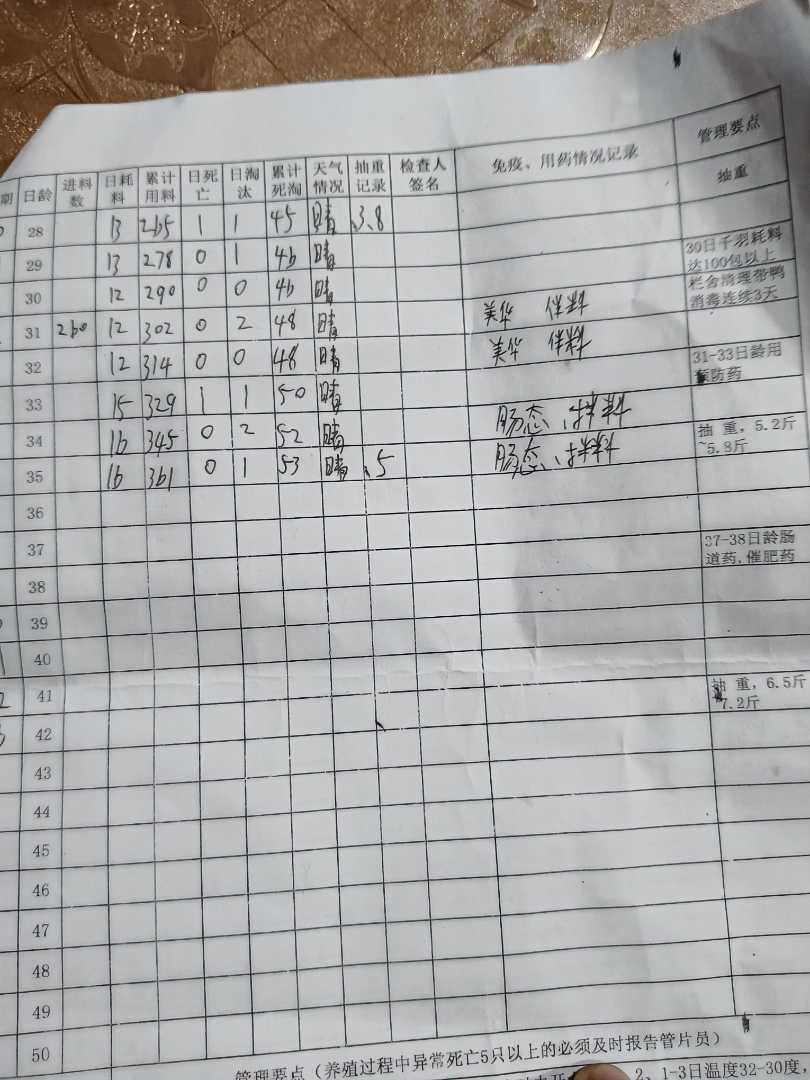 期 日龄 进料数 日耗料 累计用料 日死亡 日淘汰 累计死淘 天气情况 抽重记录 检查人签名 免疫、用药情况记录 管理要点
抽重
28 13 265 1 1 45 晴 3.8
29 13 278 0 1 46 晴 30日千羽耗料
达100包以上
30 12 290 0 0 46 晴 栏舍清理带鸭
消毒连续3天
31 260 12 302 0 2 48 晴 美华 伴料
32 12 314 0 0 48 晴 美华 伴料 31-33日龄用
预防药
33 15 329 1 1 50 晴
34 16 345 0 2 52 晴 肠态、拌料 抽 重，5.2斤
~5.8斤
35 16 361 0 1 53 晴 5 肠态、拌料
36
37 37-38日龄肠
道药,催肥药
38
39
40
41 抽 重，6.5斤
7.2斤
42
43
44
45
46
47
48
49
50
管理要点（养殖过程中异常死亡5只以上的必须及时报告管片员）
2、1-3日温度32-30度，